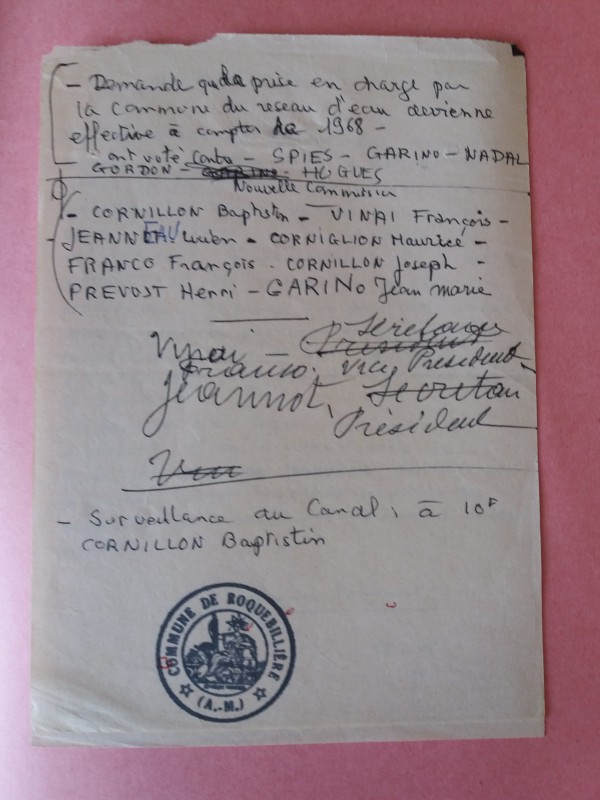 - Demande que la prise en charge par
la Commune du reseau d'eau devienne
effective à compter de 1968 -
ont voté contre - SPIES - GARINO - NADAL
GORDON - HUGUES
Nouvelle Commission
- CORNILLON Baptistin - VINAI François -
- JEANNEAU Lucien - CORNIGLION Maurice -
FRANCO François - CORNILLON Joseph -
PREVOST Henri - GARINO Jean Marie
Secretaire
Vinai - President
Franco. Vice President
Jeannot, Secretair
Président
- Surveillance du Canal, à 10F
CORNILLON Baptistin
COMMUNE DE ROQUEBILLIÈRE
(A.-M.)